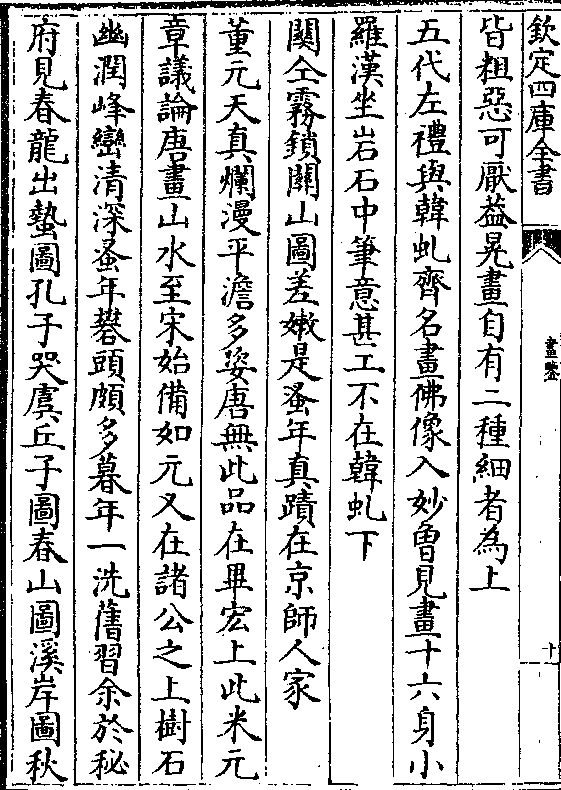 欽定四庫全書
畫鑒
十
皆粗惡可厭葢晃畫自有二種細者為上
五代左禮與韓虬齊名畫佛像入妙曾見畫十六身小
羅漢坐岩石中筆意甚工不在韓虬下
關仝霧鎖關山圖差嫩是蚤年真蹟在京師人家
董元天真爛漫平澹多姿唐無此品在畢宏上此米元
章議論唐畫山水至宋始備如元又在諸公之上樹石
幽潤峰巒清深蚤年礬頭頗多暮年一洗舊習余於秘
府見春龍出蟄圖孔子哭虞丘子圖春山圖溪岸圖秋